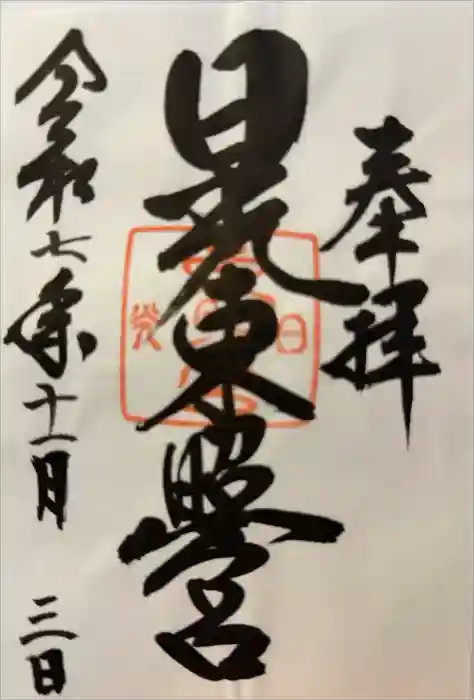 奉拝
日光東照宮
令和七年十一月三日